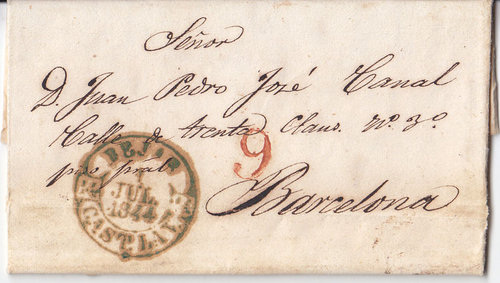 Señor
D. Juan Pedro José Canal
Calle de trenta Claus. Nº. 3º
piso pral.
Barcelona
9
BEJAR
JUL.
1844
CAST. LA V.